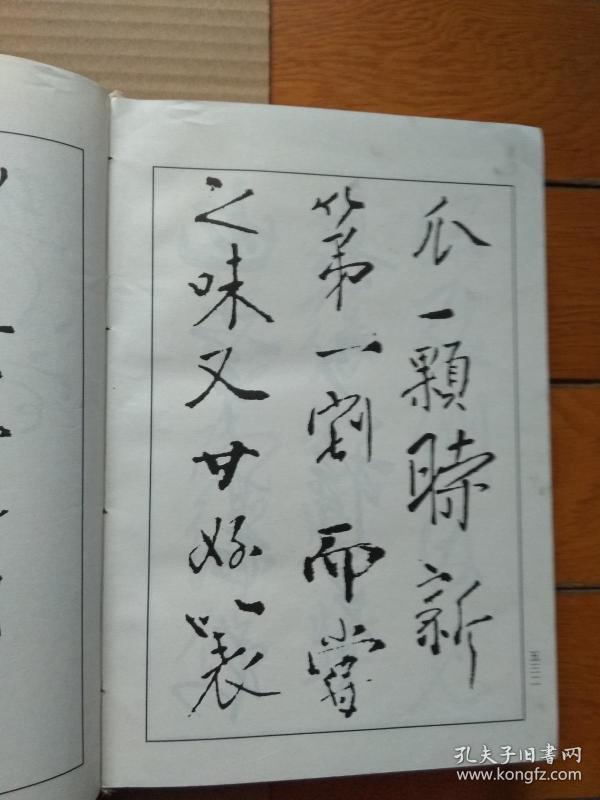 瓜一顆新
第一割而嘗
之味又甘好
五三二
孔夫子旧書网
www.kongfz.com